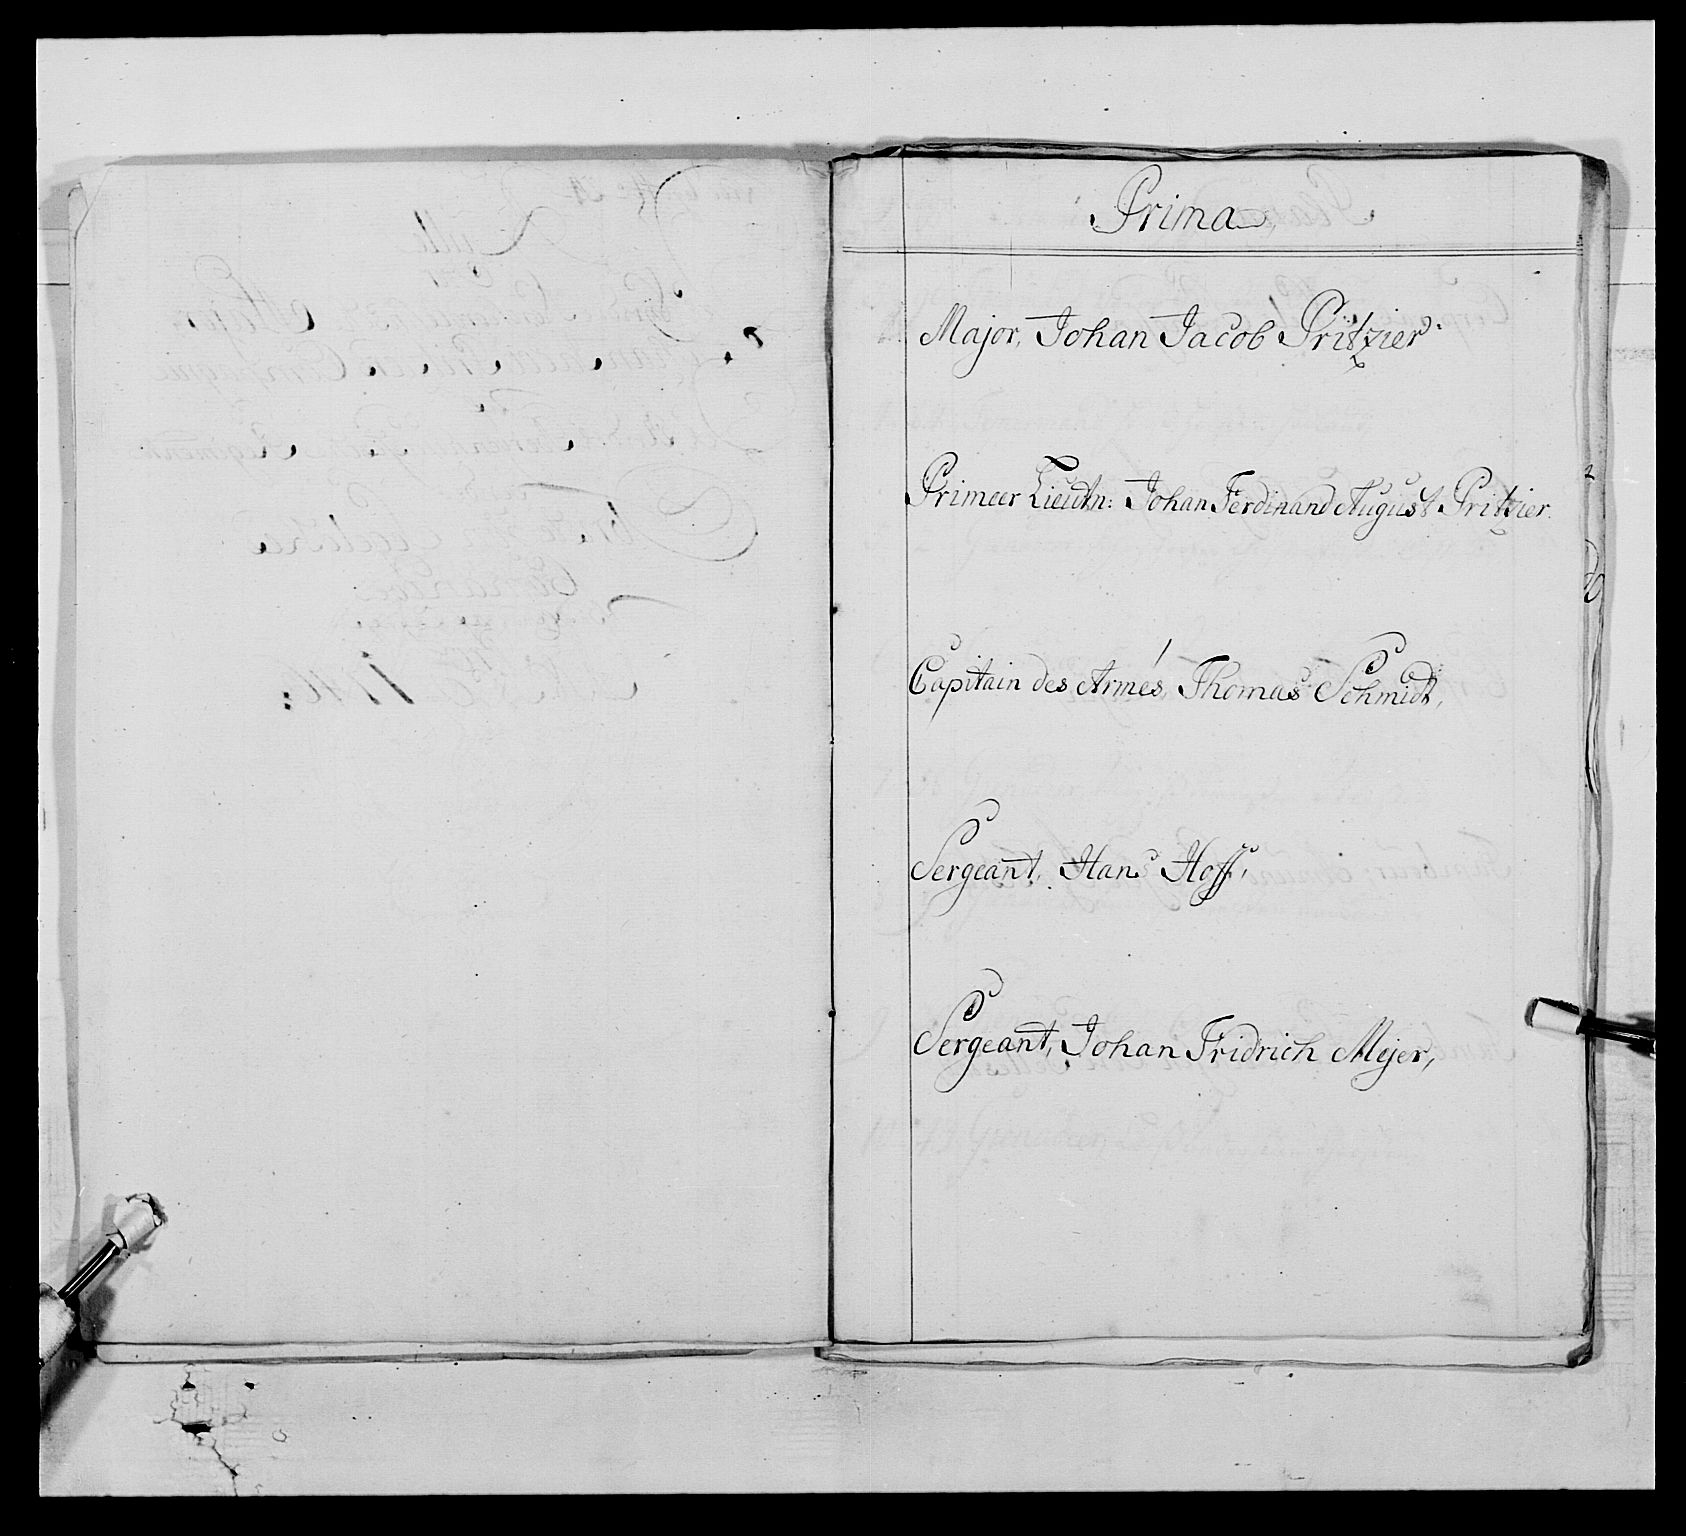 Prima,
Major, Johan Jacob Pritzier:
Primeer Lieutn: Johan Ferdinand August Pritzier.
Capitain des Armés, Thomas Schmidt,
Sergeant, Hans Hoff,
Sergeant, Johan Fridrich Mejer,